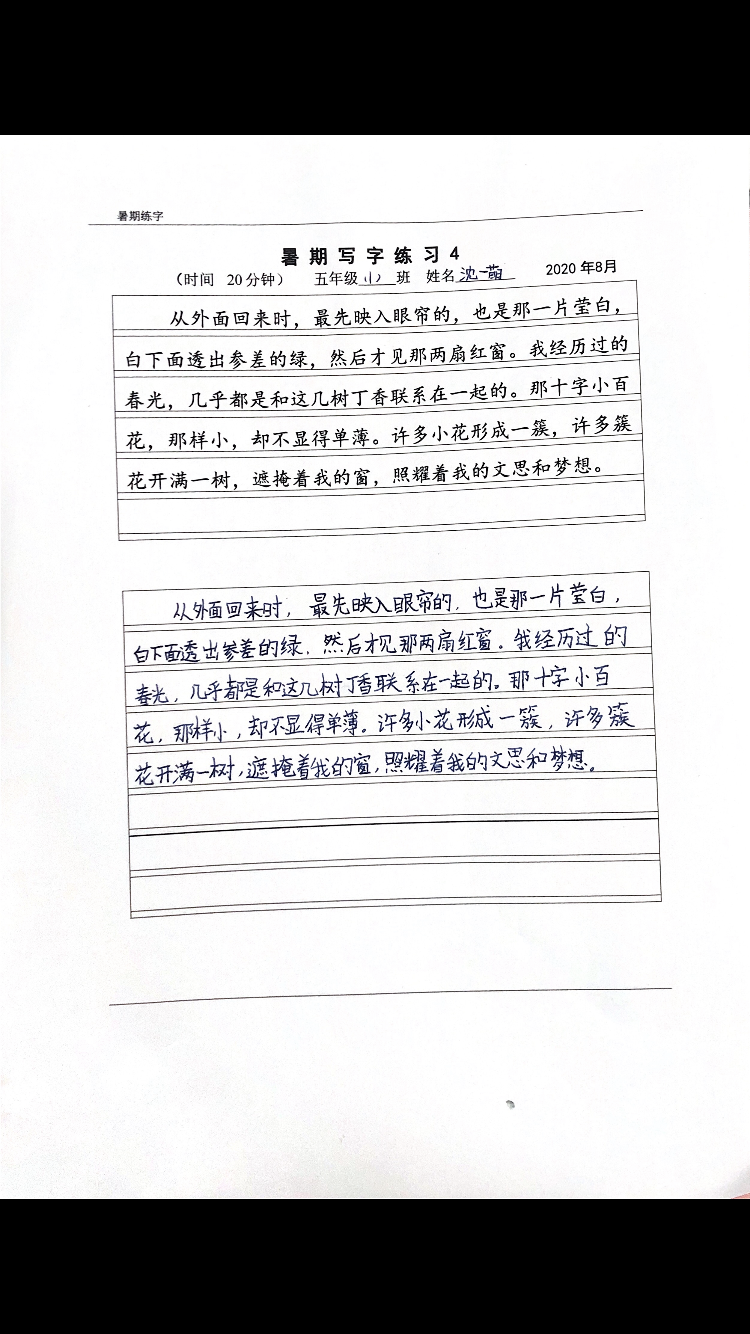 暑期练字
暑期写字练习4
（时间 20分钟） 五年级（1）班 姓名沈一萌 2020年8月
从外面回来时，最先映入眼帘的，也是那一片莹白，
白下面透出参差的绿，然后才见那两扇红窗。我经历过的
春光，几乎都是和这几树丁香联系在一起的。那十字小百
花，那样小，却不显得单薄。许多小花形成一簇，许多簇
花开满一树，遮掩着我的窗，照耀着我的文思和梦想。
从外面回来时，最先映入眼帘的，也是那一片莹白，
白下面透出参差的绿，然后才见那两扇红窗。我经历过的
春光，几乎都是和这几树丁香联系在一起的。那十字小百
花，那样小，却不显得单薄。许多小花形成一簇，许多簇
花开满一树，遮掩着我的窗，照耀着我的文思和梦想。